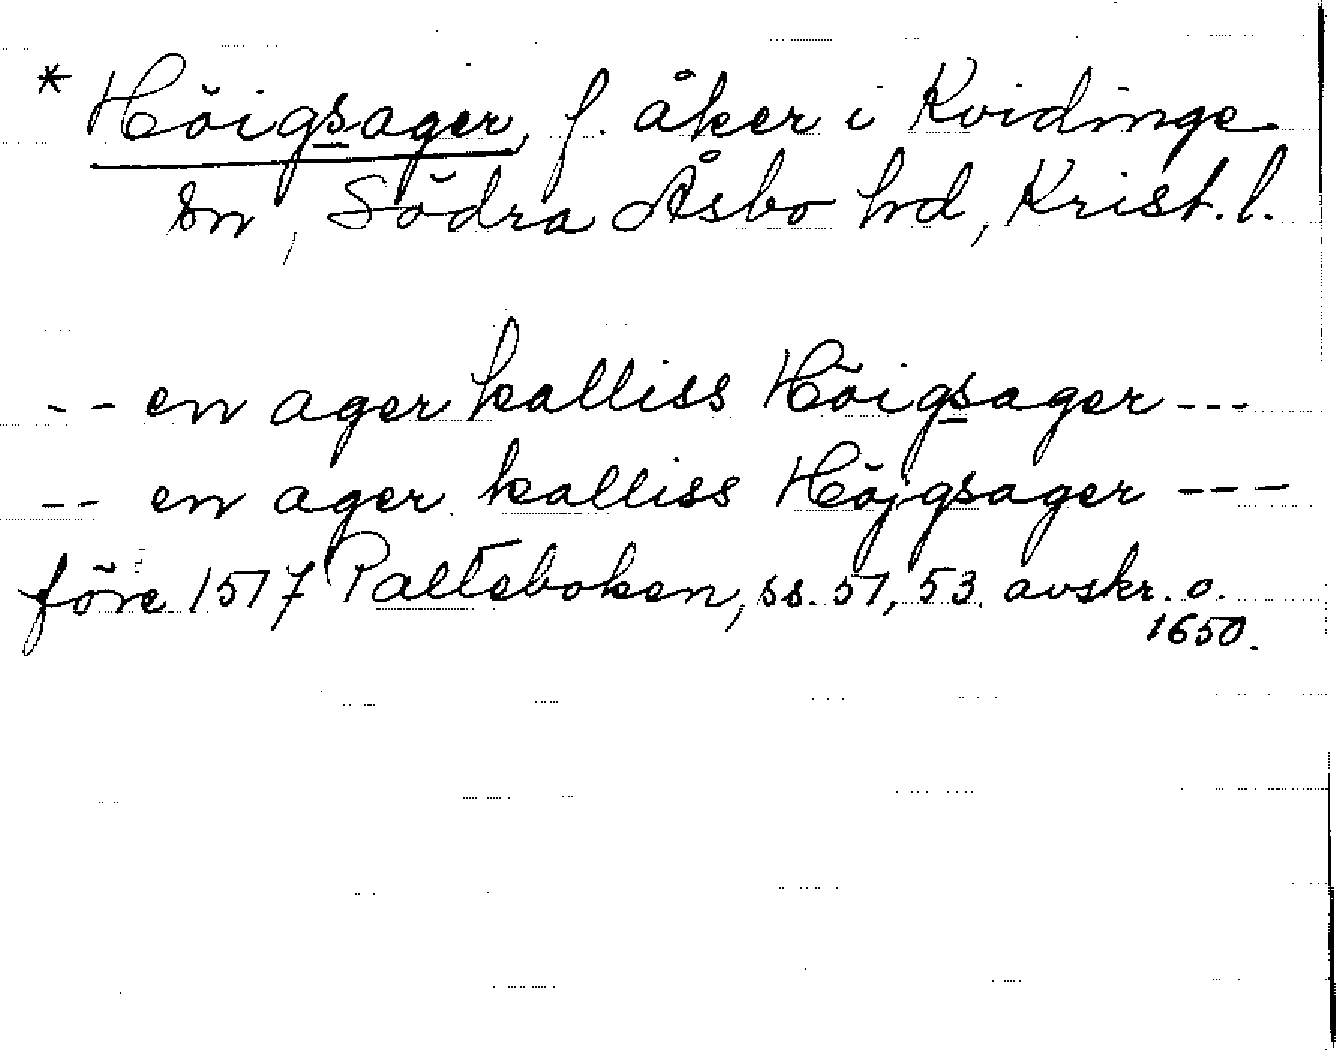 * Höigsager, f. åker i Kvidinge
sn, Södra Åsbo hd, Krist. l.
-- en ager kalliss Höigsager ---
-- en ager kalliss Höjgsager ---
före 1517 Palteboken, ss. 51, 53. avskr. o.
1650.